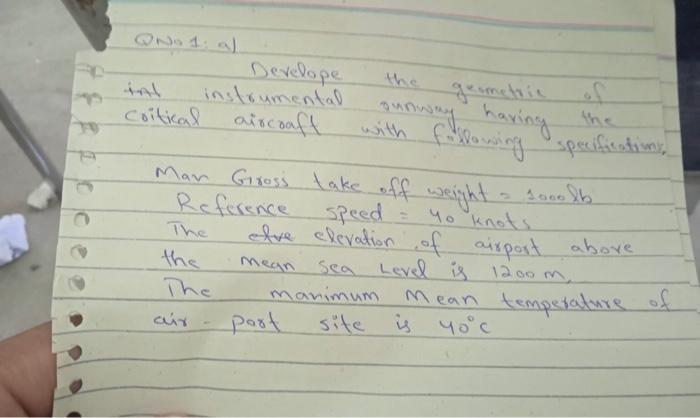 QNo 1: a)
Develope the geometric of
int instrumental runway having the
critical aircraft with following specifications,
Max Gross take off weight = 1000 lb
Reference speed = 40 knots
The elve elevation of airport above
the mean sea Level is 1200 m,
The maximum mean temperature of
air-port site is 40°C